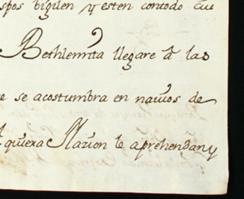 spos vigilen y esten contodo cui
Bethlemita llegare â las
e se acostumbra en navios de
quiera Navion le aprehendan y